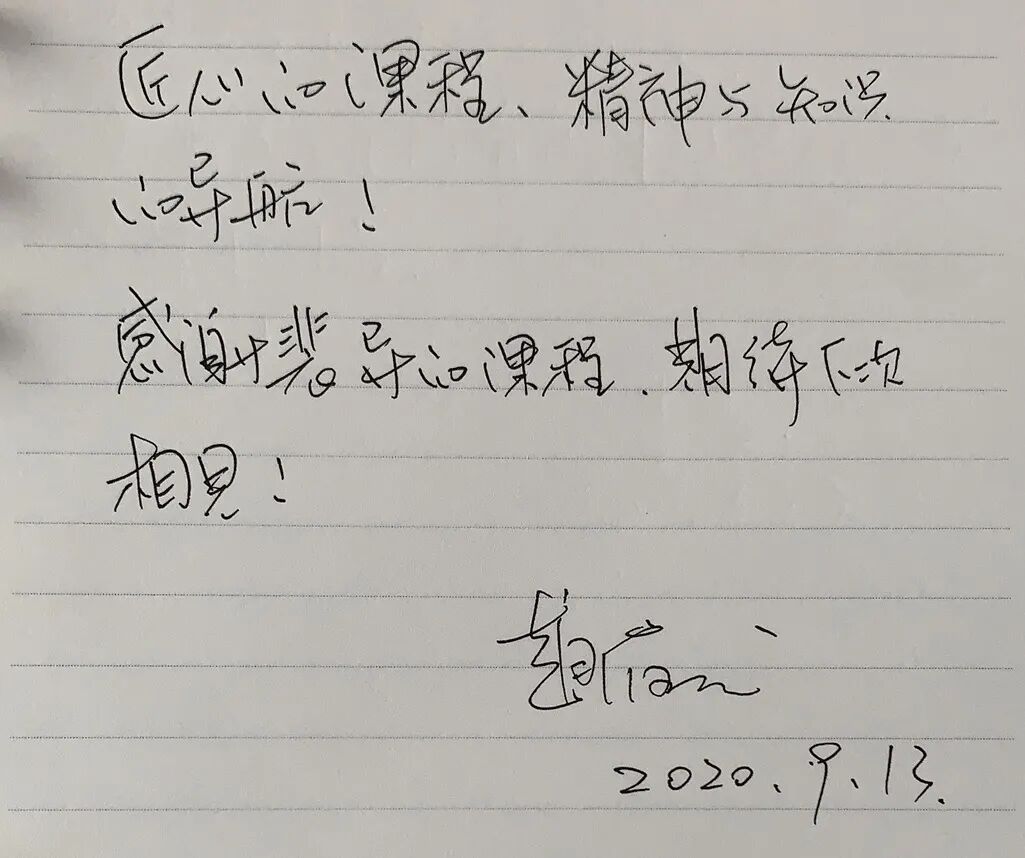 匠心的课程、精神与知识
的导航！
感谢裴导的课程、期待下次
相见！
2020.9.13.